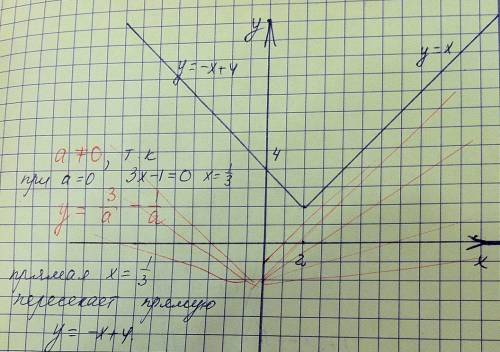 y
y = -x+4
y = x
4
a ≠ 0, т к
при a=0 3x-1=0 x=1/3
y = 3/a - 1/a
2
x
прямая x = 1/3
пересекает прямую
y = -x+4